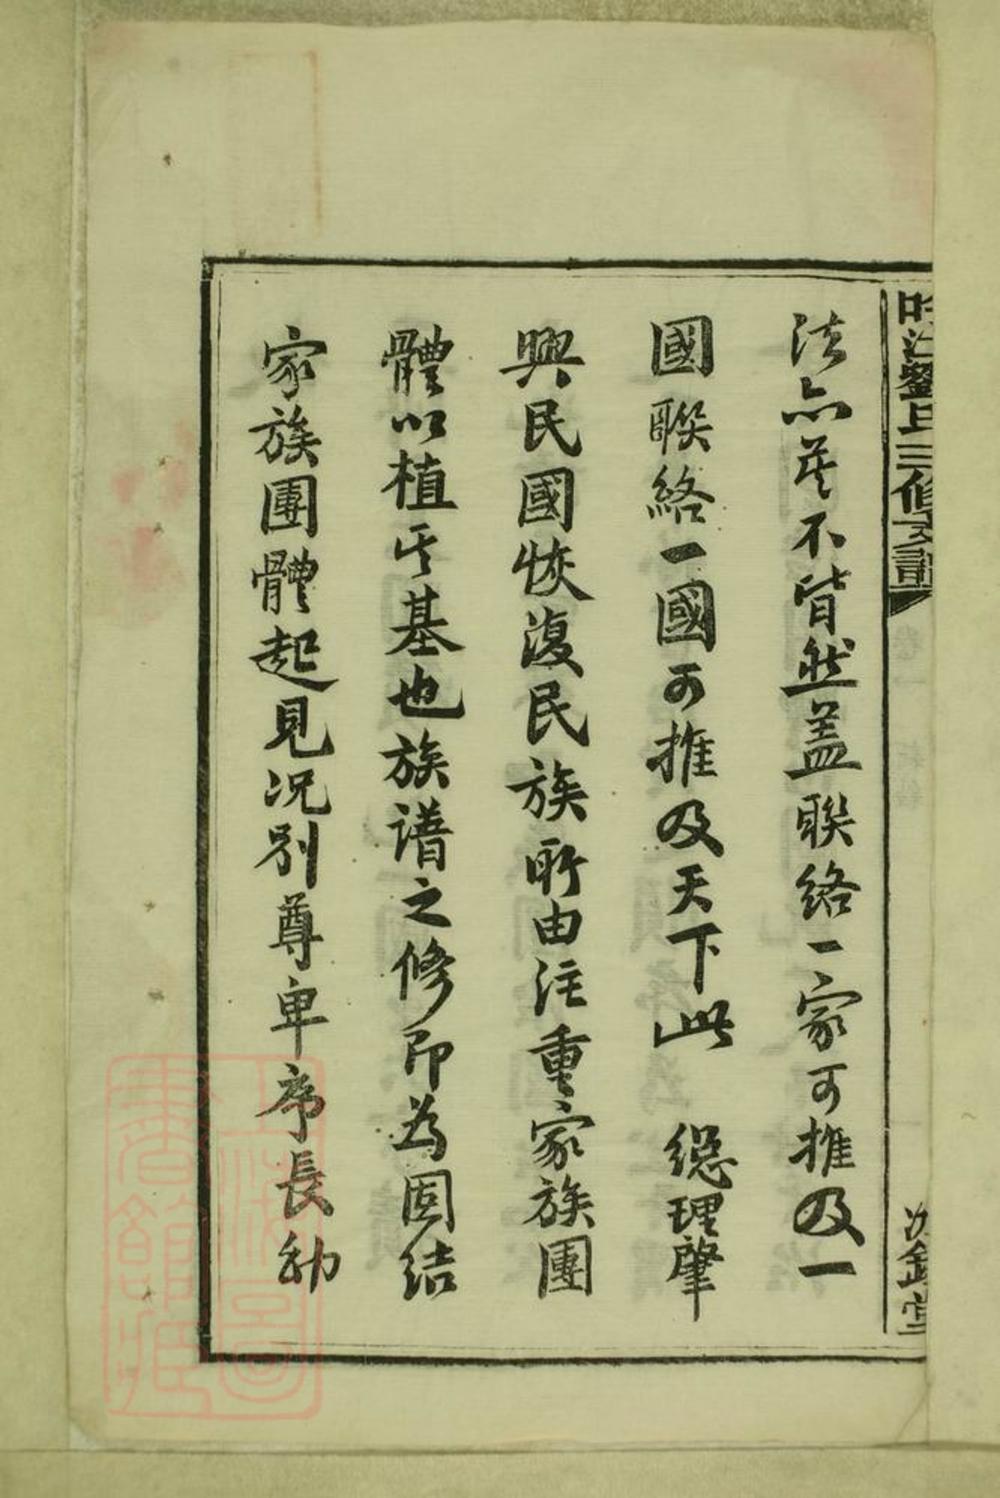 劉氏三修支譜
法亦莫不皆然盖聯絡一家可推及一
國聯絡一國可推及天下此　總理肇
興民國恢復民族所由注重家族團
體以植其基也族譜之修即為固結
家族團體起見况別尊卑序長幼
上海圖書館藏